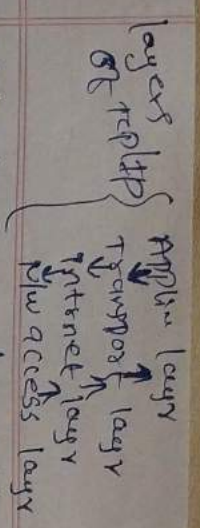 layers
of tcp/IP
Appli layr
Transport layr
Intrnet layr
N/w access layr